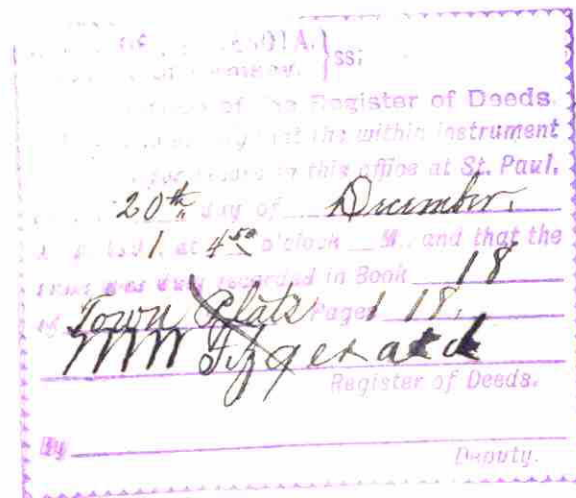 ss:
of the Register of Deeds.
that the within instrument
in this office at St. Paul.
20th day of December.
1 at 4 50 o'clock M. and that the
was duly recorded in Book 18
of Town Plats Page 18.
M W Fitzgerald
Register of Deeds.
By
Deputy.